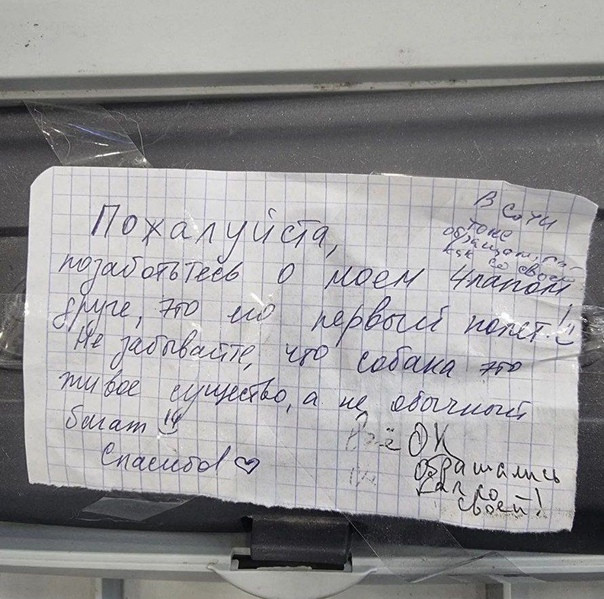 Пожалуйста,
позаботьтесь о моем 4лапом
друге, это его первый полет!!
Не забывайте, что собака это
живое существо, а не обычный
багаж !!
Спасибо! ♡
В Сочи
тоже
обращались
как со своей
Всё ОК
обращались
как со
своей!